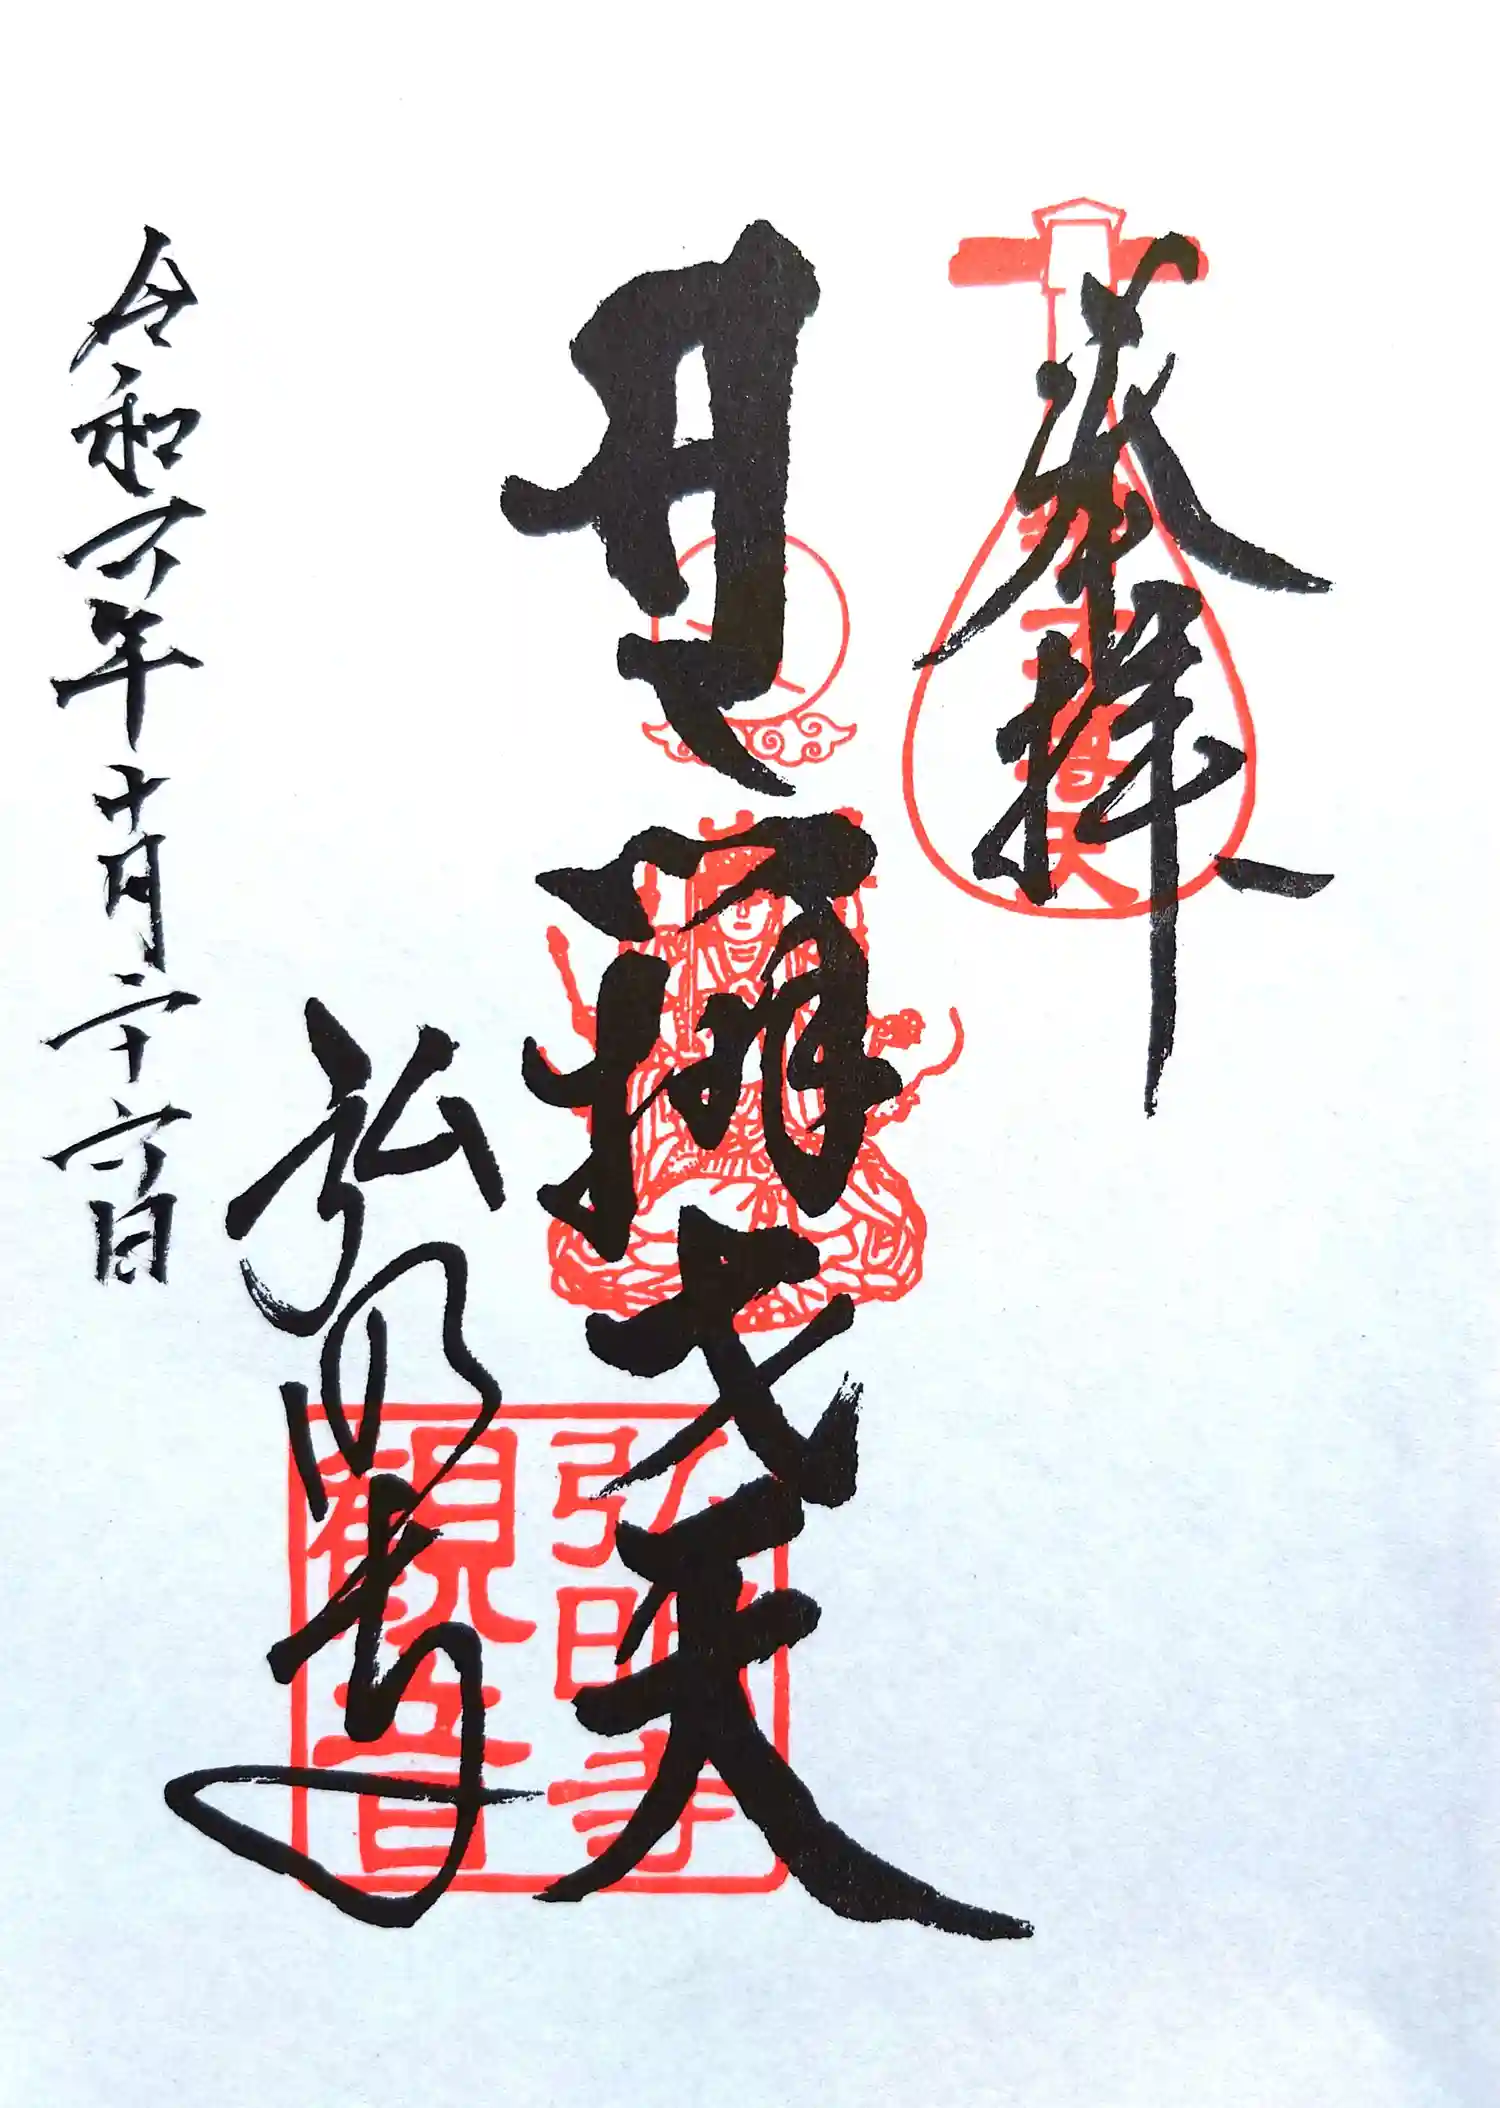 奉拝
辨才天
弘明寺
弘明寺
観音
令和六年十月二十六日